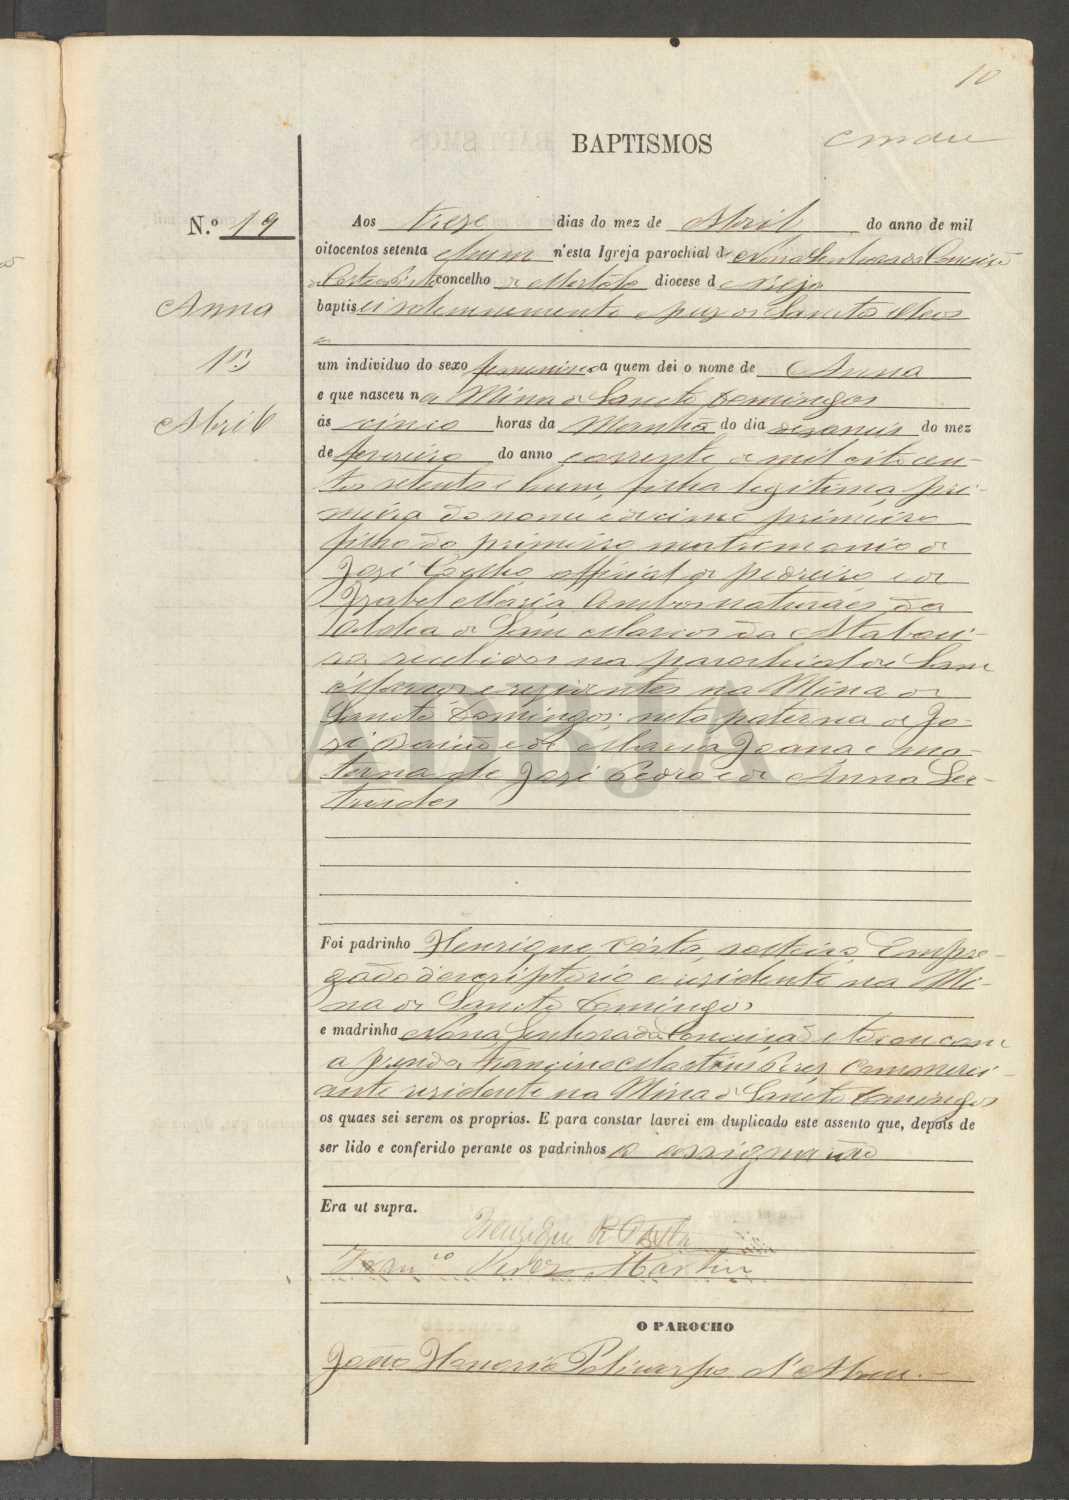 10
BAPTISMOS
N.º 19
Anna
1ª
Abril
Aos treze dias do mez de Abril do anno de mil
oitocentos setenta e hum n'esta Igreja parochial de Nossa Senhora da Conceição
de Corte do Pinto concelho de Mertola diocese d Beja
baptisei solemnemente e puz os Sanctos Oleos
um individuo do sexo femenino a quem dei o nome de Anna
e que nasceu na Mina de Sancto Domingos
ás cinco horas da Manhã do dia do mez
de fevereiro do anno corrente de mil oito cen-
tos setenta e hum, filha legitima, pri-
meira do nome e decimo primeiro
filho do primeiro matrimonio de
José Coelho official de pedreiro e de
Izabel Maria, Ambos naturáes da
Aldea de Sam Marcos da Atabuei-
ra recebidos na parochial de Sam
Marcos e rezidentes na Mina de
Sancto Domingos; neta paterna de Jo-
sé e de Maria Joana e ma-
terna de José Pedro e de Anna Ger-
trudes
ADBJA
Foi padrinho Henrique Cósta, solteiro, Empre-
gado d'escriptorio e rezidente na Mi-
na de Sancto Domingos
e madrinha Nossa Senhora da Conceição e tocou com
a prenda Francisco Martins Peres commerci-
ante rezidente na Mina de Sancto Domingos
os quaes sei serem os proprios. E para constar lavrei em duplicado este assento que, depois de
ser lido e conferido perante os padrinhos o assignarão
Era ut supra.
Henrique Costa
Franco Peres Martins
O PAROCHO
João Honorio Policarpo d'Abreu.